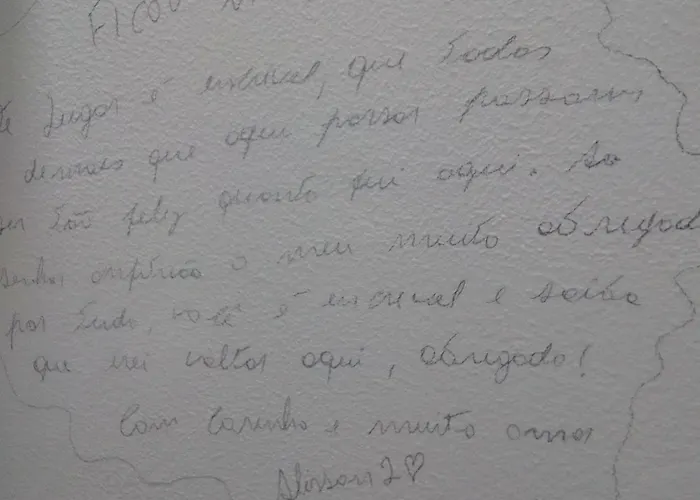 FICOU
Lugar é incrivel, que todos
demais que aqui passar possam
ser tão feliz quanto fui aqui. Ao
senhor o meu muito obrigado
por tudo, você é incrivel e saiba
que irei voltar aqui, obrigado!
Com Carinho e muito amor
Alisson ♡